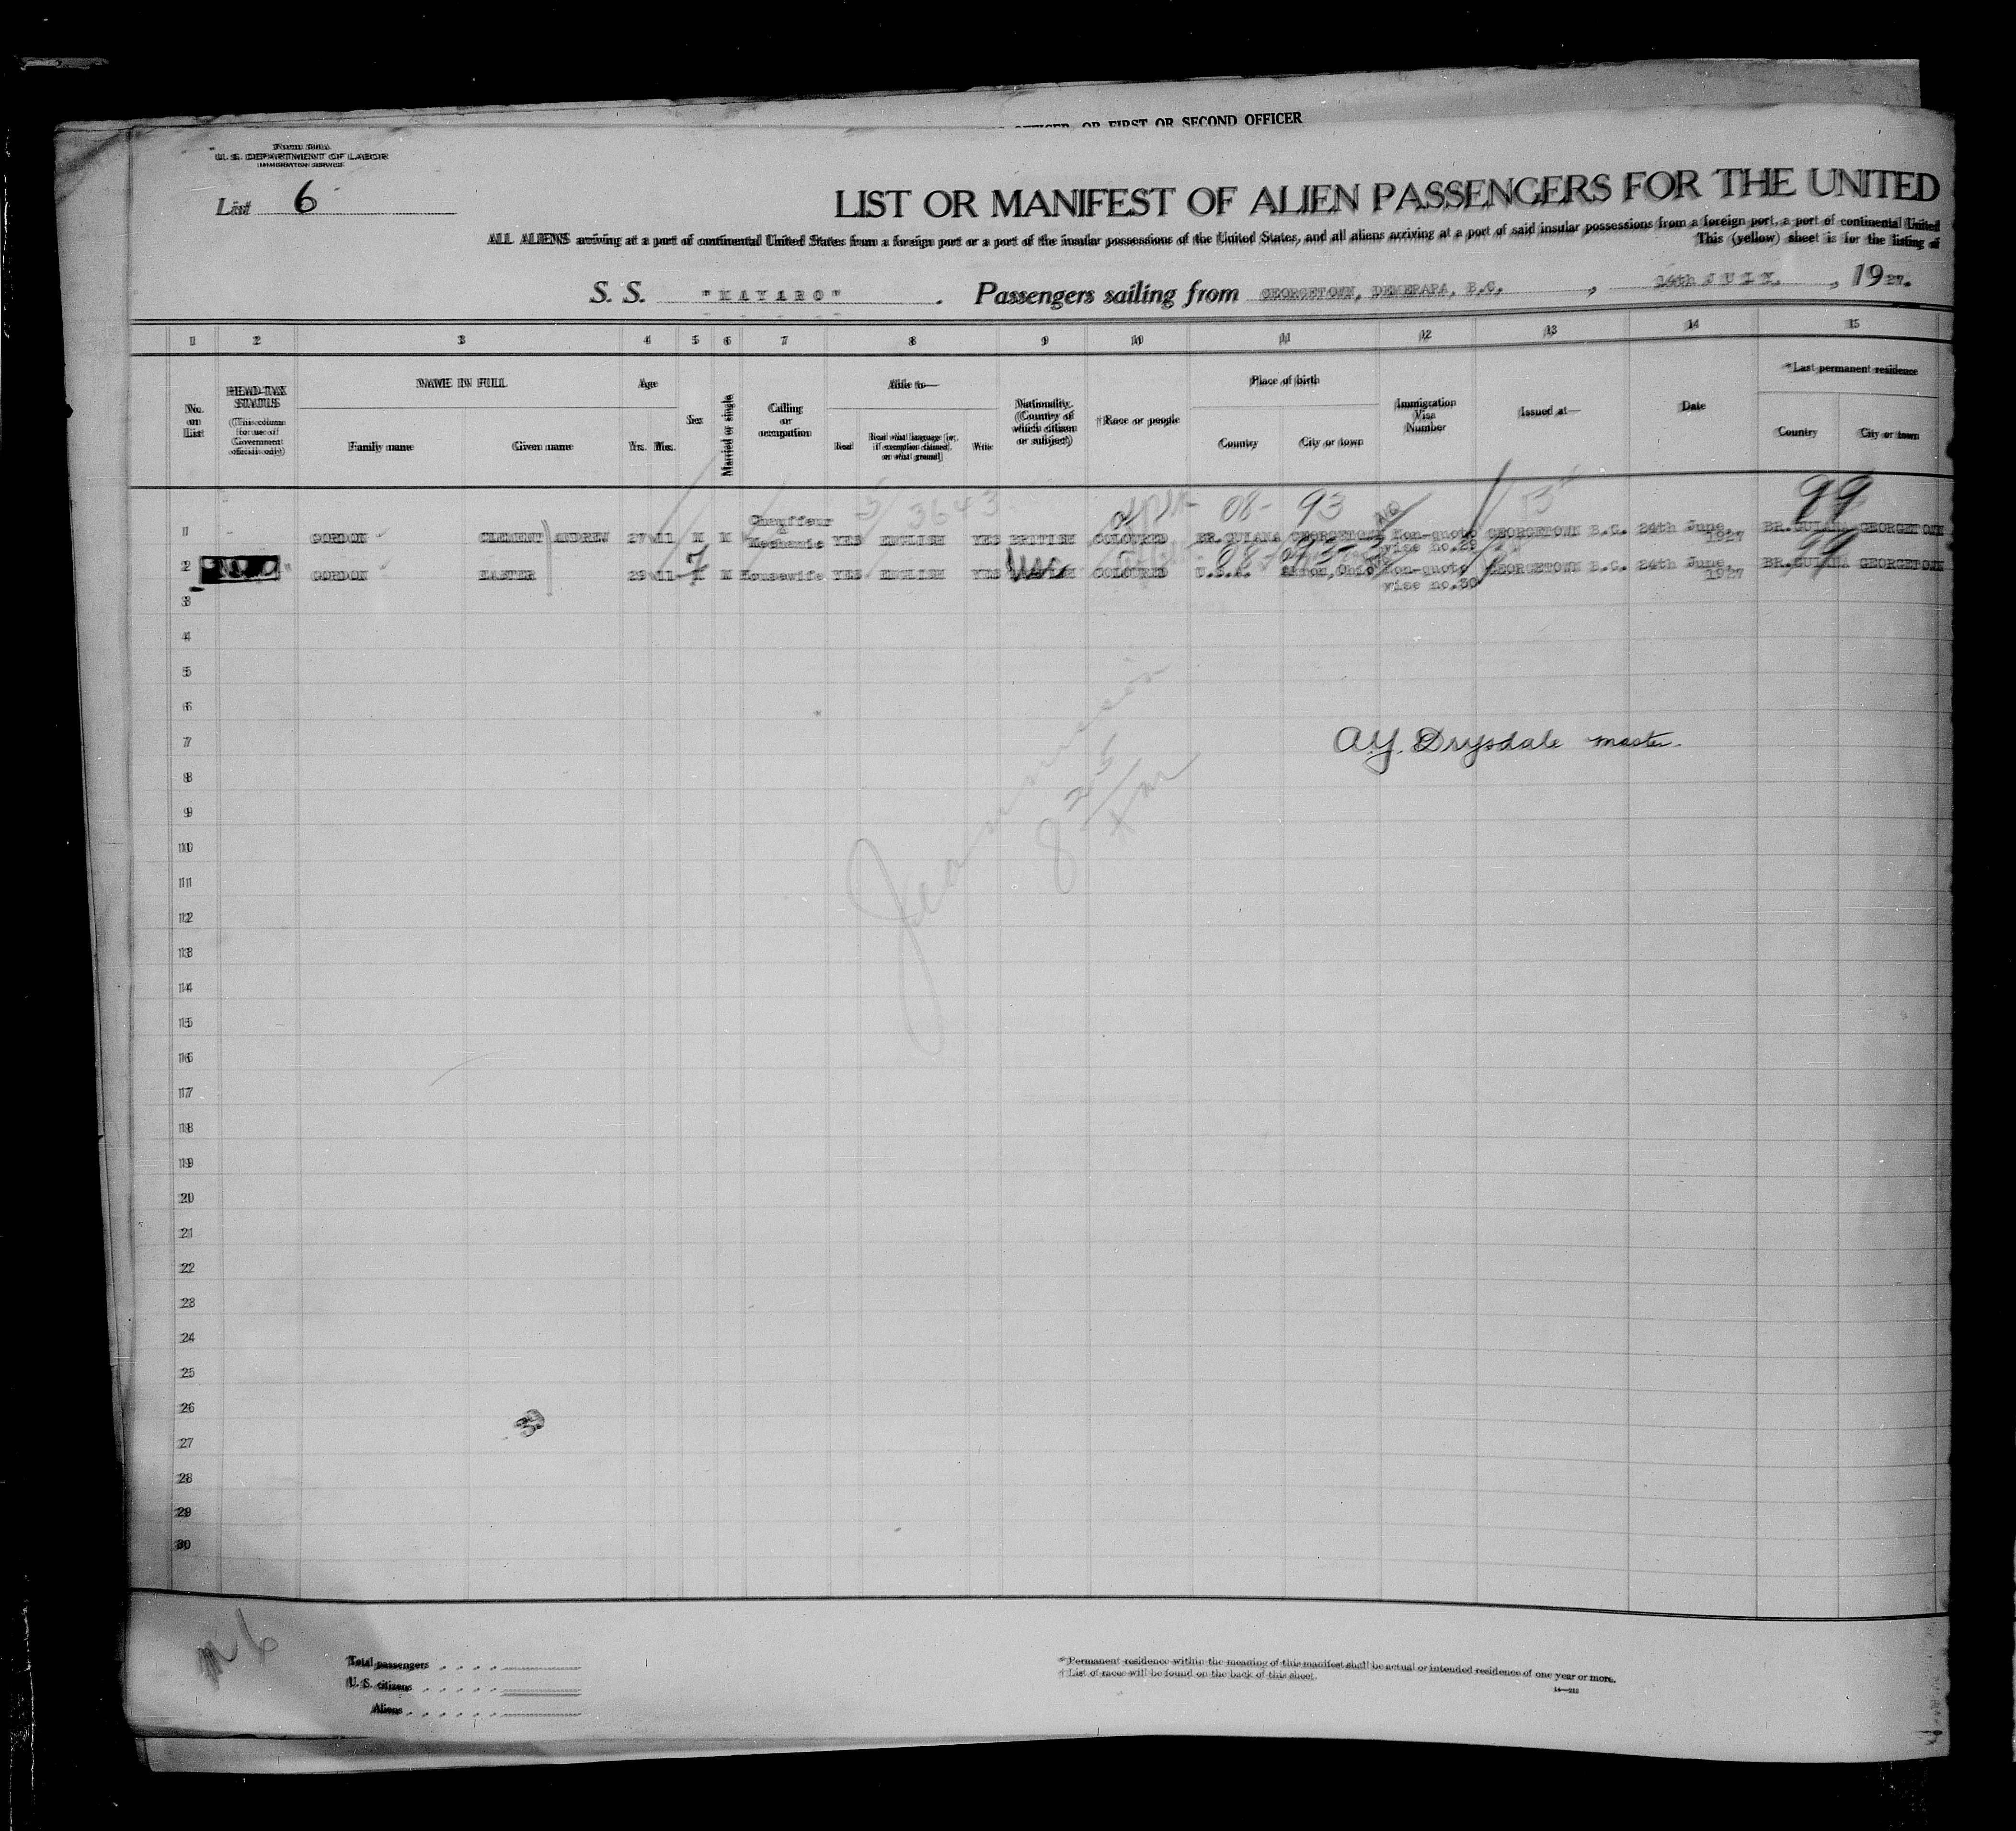 OFFICER, OR FIRST OR SECOND OFFICER
U. S. DEPARTMENT OF LABOR
IMMIGRATION SERVICE
List 6
LIST OR MANIFEST OF ALIEN PASSENGERS FOR THE UNITED
ALL ALIENS arriving at a port of continental United States from a foreign port or a port of the insular possessions of the United States, and all aliens arriving at a port of said insular possessions from a foreign port, a port of continental United
This (yellow) sheet is for the listing of
S. S. "MAYARO" . Passengers sailing from GEORGETOWN, DEMERARA, B.G. , 16th JULY. , 1927.
1 2 3 4 5 6 7 8 9 10 11 12 13 14 15
No. on List
HEAD-TAX STATUS
(This column for use of Government officials only)
NAME IN FULL
Family name Given name
Age
Yrs. Mos.
Sex
Married or single
Calling or occupation
Able to—
Read Read what language [or, if exemption claimed, on what ground] Write
Nationality. (Country of which citizen or subject)
†Race or people
Place of birth
Country City or town
Immigration Visa Number
Issued at—
Date
*Last permanent residence
Country City or town
3643 08- 93 99
1 GORDON CLEMENT ANDREW 27 11 M M Chauffeur & Mechanic YES ENGLISH YES BRITISH COLOURED BR.GUIANA GEORGETOWN Non-quota vise no.29 GEORGETOWN B.G. 24th June, 1927 BR.GUIANA GEORGETOWN
08- 93 99
2 GORDON EASTER 29 11 M Housewife YES ENGLISH YES COLOURED U.S.A. Akron,Ohio Non-quota vise no.30 GEORGETOWN B.G. 24th June, 1927 BR.GUIANA GEORGETOWN
3
4
5
6
7
A.Y. Drysdale master.
8
9
10
11
12
13
14
15
16
17
18
19
20
21
22
23
24
25
26
27
28
29
30
m 6
Total passengers
U. S. citizens
Aliens
* Permanent residence within the meaning of this manifest shall be actual or intended residence of one year or more.
† List of races will be found on the back of this sheet.